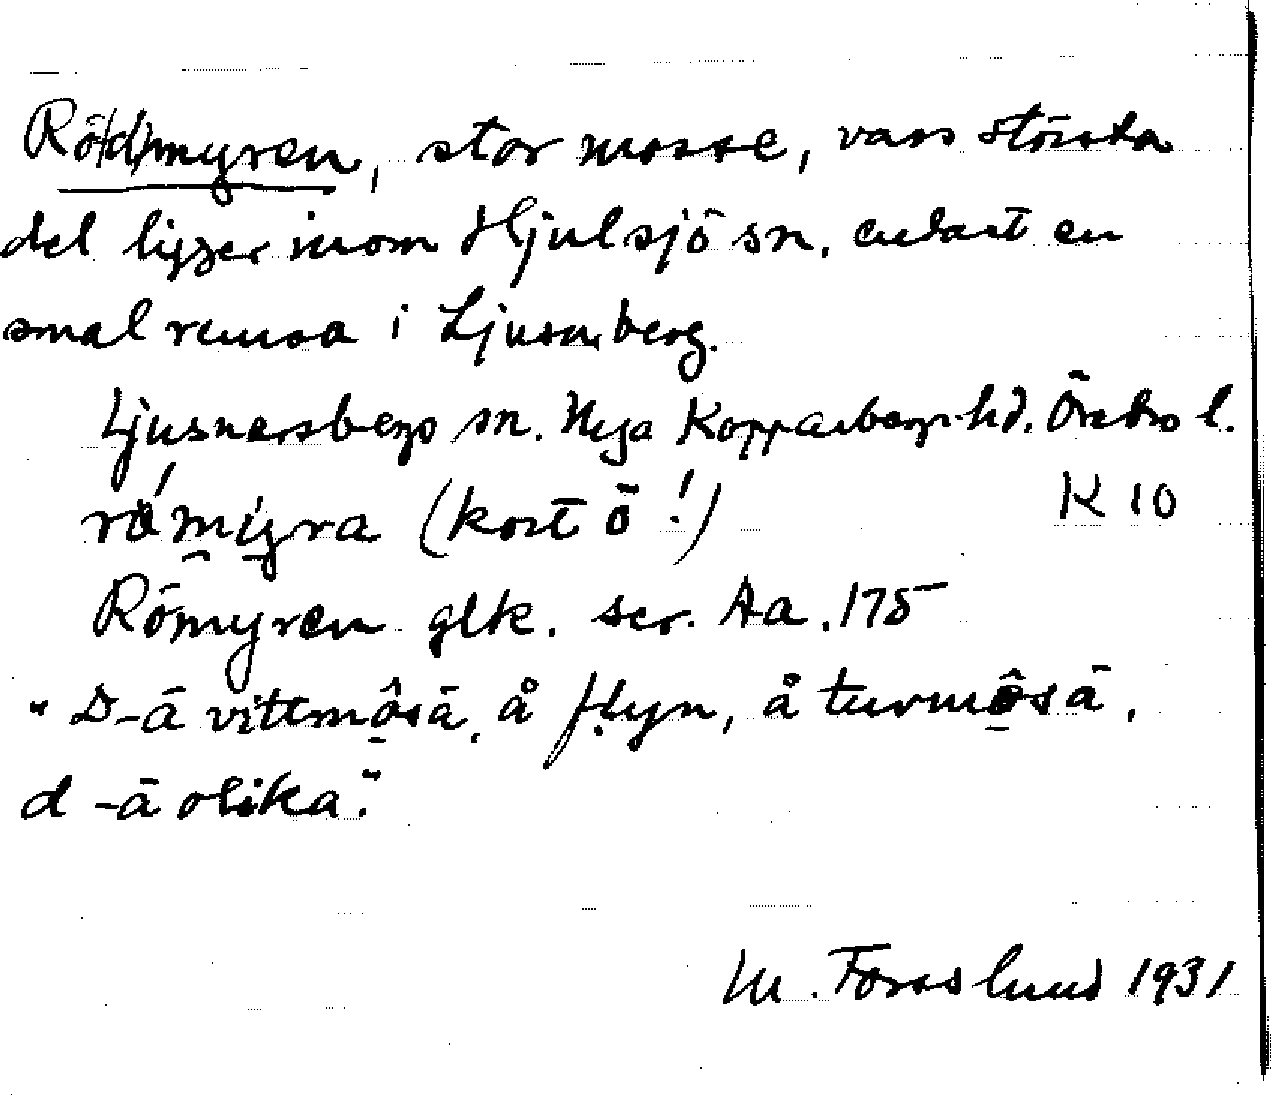 Rö(d)myren, stor mosse, vars största
del ligger inom Hjulsjö sn, endast en
smal remsa i Ljusn.berg.
Ljusnarsbergs sn. Nya Kopparbergs hd. Örebro l.
römyra (kort ö!) K 10
Römyren glk. ser. Aa. 175
"D-ä vittmôsä, å flyn, å turmôsä,
d-ä olika."
M. Forsslund 1931